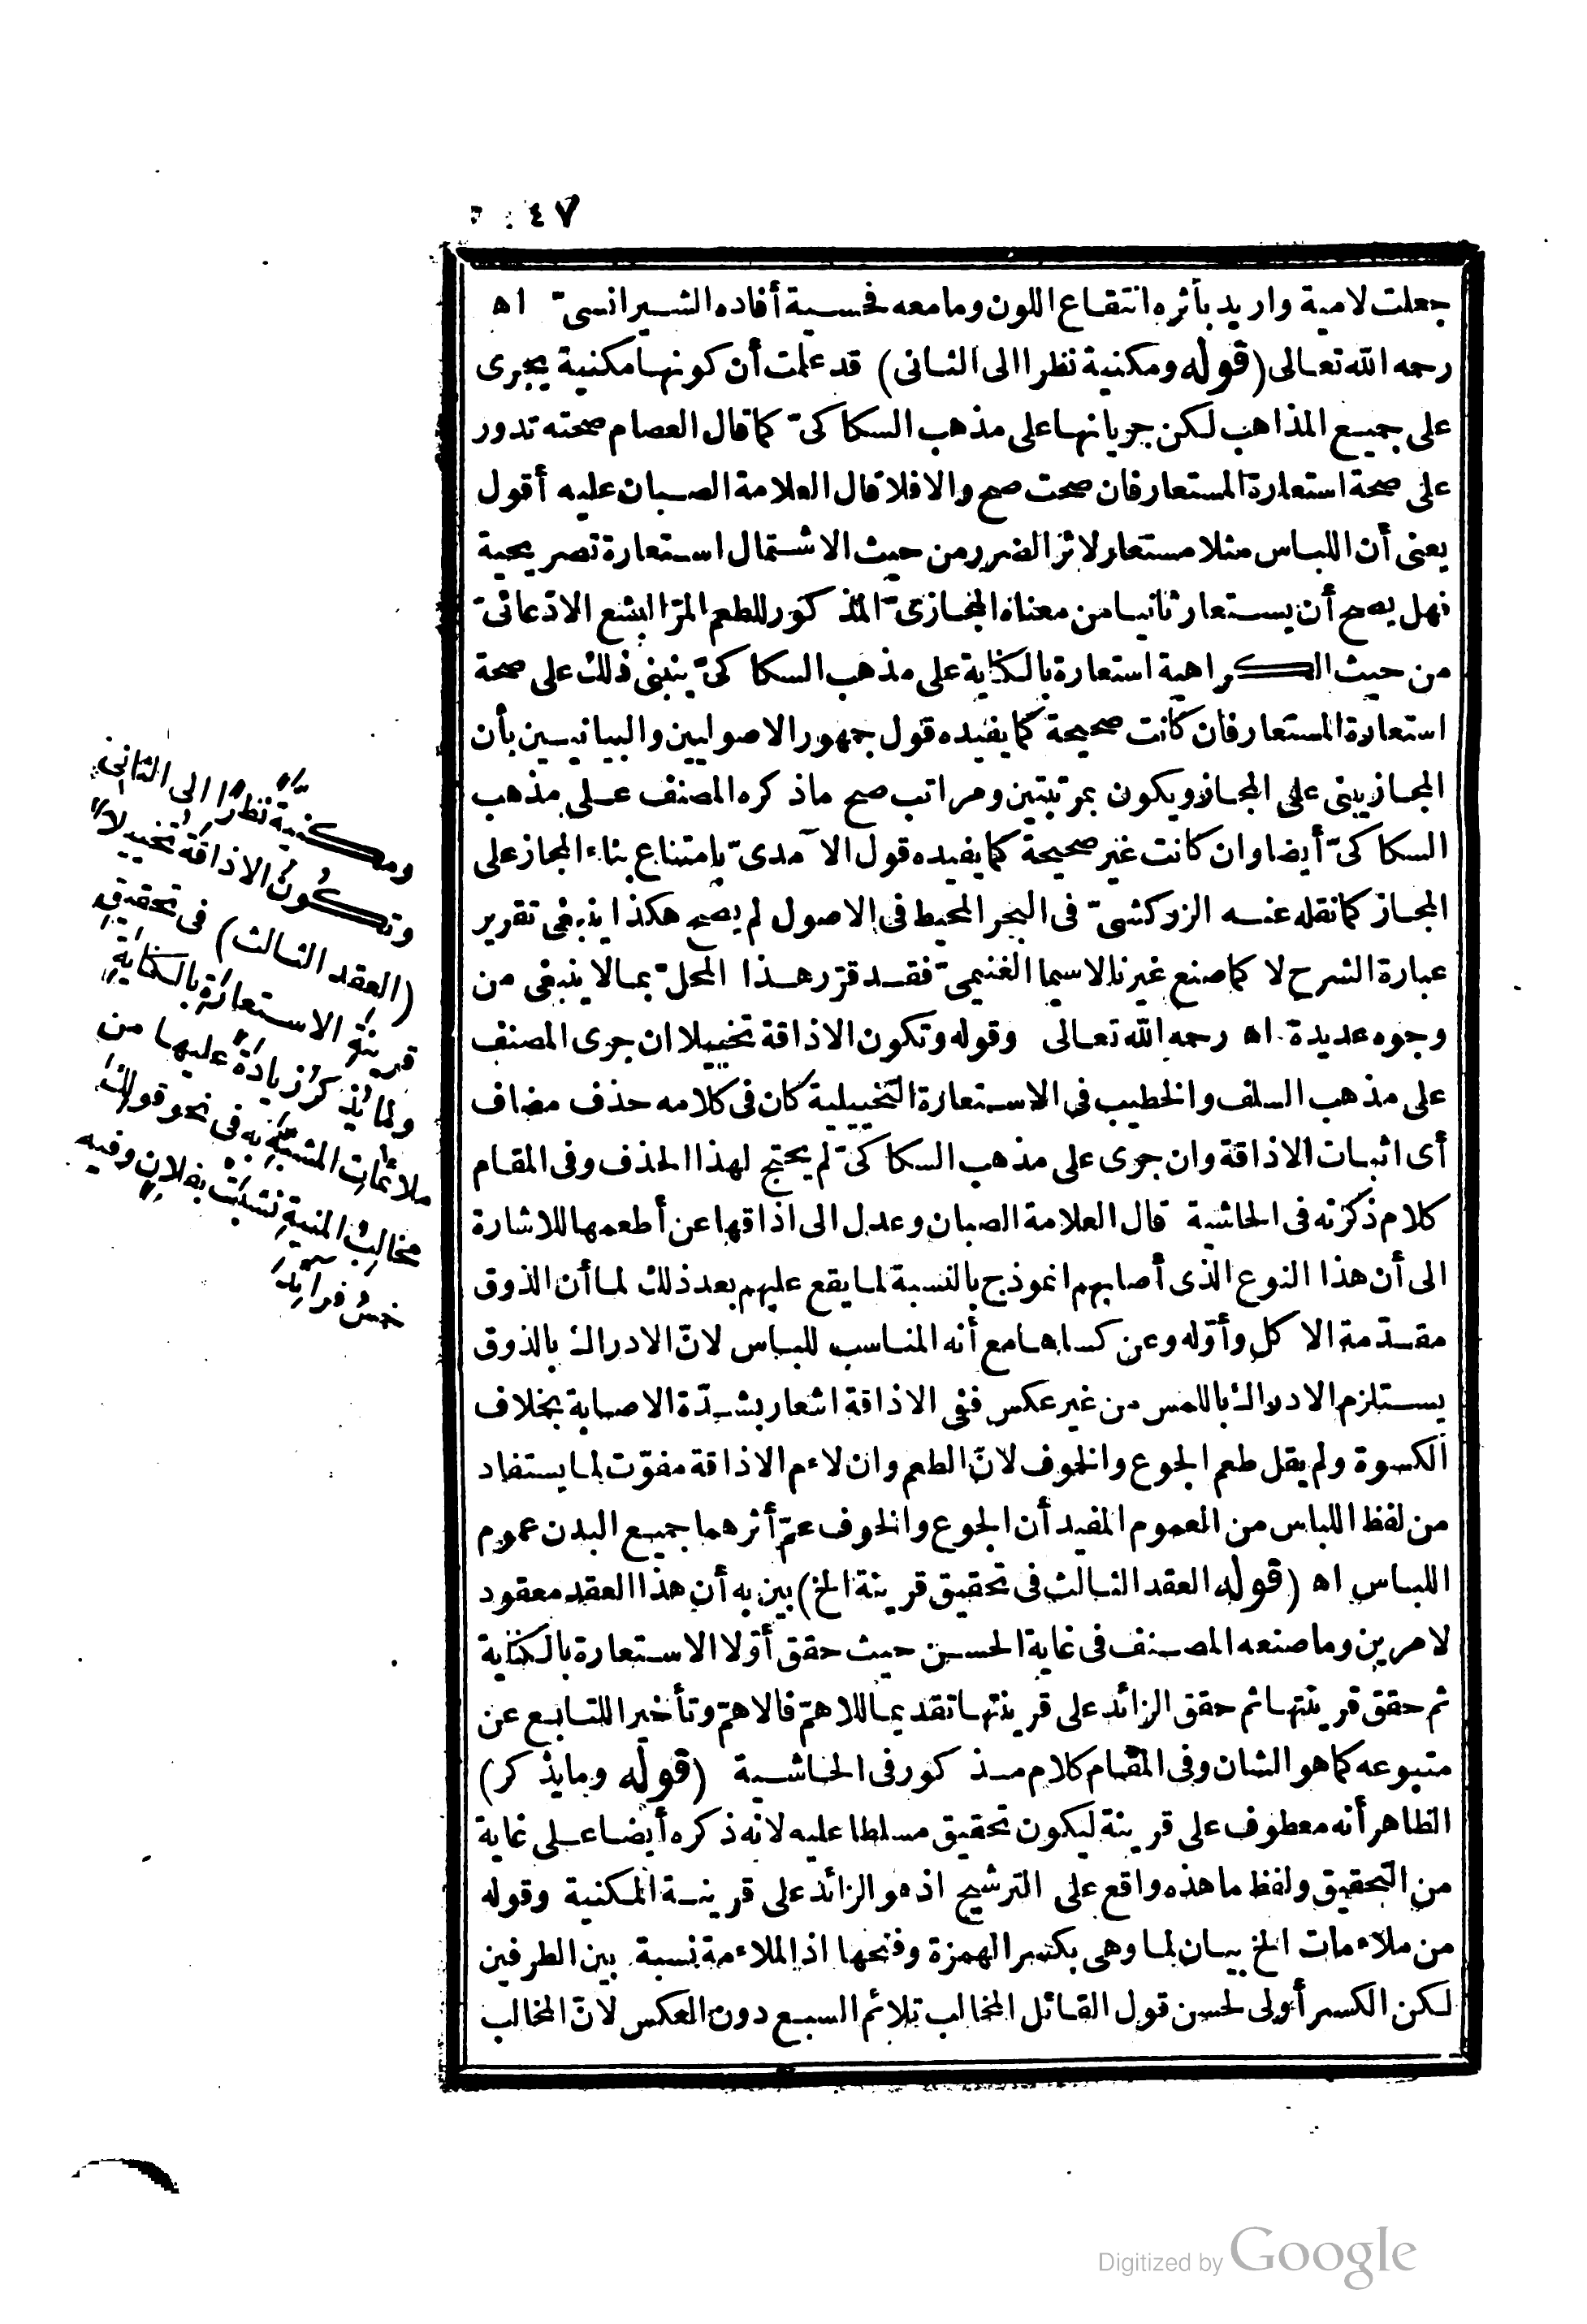 ٤٧
جعلت لامية واريد بأثره انتقاع اللون ومامعه فحسية أفاده الشيرانسىّ اه
رحمه الله تعالى (قوله ومكنية نظرا الى الثانى) قد علمت أن كونها مكنية يجرى
على جميع المذاهب لكن جريانها على مذهب السكاكىّ كما قال العصام صحته تدور
على صحة استعارة المستعار فان صحت صح والا فلا قال العلامة الصبان عليه أقول
يعنى أن اللباس مثلا مستعار لاثر الضرر من حيث الاشتمال استعارة تصريحية
فهل يصح أن يستعار ثانيا من معناه المجازىّ المذكور للطعم المرّ البشع الادّعائىّ
من حيث الكراهية استعارة بالكناية على مذهب السكاكىّ ينبنى ذلك على صحة
استعارة المستعار فان كانت صحيحة كما يفيده قول جمهور الاصوليين والبيانيين بأن
المجاز يبنى على المجاز ويكون بمرتبتين ومراتب صح ماذكره المصنف على مذهب
السكاكىّ أيضا وان كانت غير صحيحة كما يفيده قول الآمدىّ بامتناع بناء المجاز على
المجاز كما نقله عنه الزركشىّ فى البحر المحيط فى الاصول لم يصح هكذا ينبغى تقرير
عبارة الشرح لا كما صنع غيرنا لاسيما الغنيمىّ فقد قرّر هذا المحلّ بما لا ينبغى من
وجوه عديدة اه رحمه الله تعالى وقوله وتكون الاذاقة تخييلا ان جرى المصنف
على مذهب السلف والخطيب فى الاستعارة التخييلية كان فى كلامه حذف مضاف
أى اثبات الاذاقة وان جرى على مذهب السكاكىّ لم يحتج لهذا الحذف وفى المقام
كلام ذكرته فى الحاشية قال العلامة الصبان وعدل الى اذاقها عن أطعمها للاشارة
الى أن هذا النوع الذى أصابهم انموذج بالنسبة لما يقع عليهم بعد ذلك لما أن الذوق
مقدّمة الاكل وأوّله وعن كساها مع أنه المناسب للباس لانّ الادراك بالذوق
يستلزم الادراك باللمس من غير عكس ففى الاذاقة اشعار بشدّة الاصابة بخلاف
الكسوة ولم يقل طعم الجوع والخوف لانّ الطعم وان لاءم الاذاقة مفوّت لما يستفاد
من لفظ اللباس من العموم المفيد أن الجوع والخوف عمّ أثرهما جميع البدن عموم
اللباس اه (قوله العقد الثالث فى تحقيق قرينة الخ) بين به أن هذا العقد معقود
لامرين وماصنعه المصنف فى غاية الحسن حيث حقق أوّلا الاستعارة بالكناية
ثم حقق قرينتها ثم حقق الزائد على قرينتها تقديما للاهمّ فالاهمّ وتأخيرا للتابع عن
متبوعه كما هو الشان وفى المقام كلام مذكور فى الحاشية (قوله ومايذكر)
الظاهر أنه معطوف على قرينة ليكون تحقيق مسلطا عليه لانه ذكره أيضا على غاية
من التحقيق ولفظ ما هذه واقع على الترشيح اذ هو الزائد على قرينة المكنية وقوله
من ملاءمات الخ بيان لما وهى بكسر الهمزة وفتحها اذ الملاءمة نسبة بين الطرفين
لكن الكسر أولى لحسن قول القائل المخالب تلائم السبع دون العكس لانّ المخالب
ومكنيةٌ نظرًا الى الثانى
وتكونُ الاذاقةُ تخييلًا
(العقد الثالث) فى تحقيقِ
قرينةِ الاستعارةِ بالكنايةِ
ولما يُذكرُ زيادةً عليها من
ملائماتِ المشبَّهِ به فى نحو قولك
مخالبُ المنيةِ نشبتْ بفلانٍ وفيه
خمسُ فرائدَ
Digitized by Google